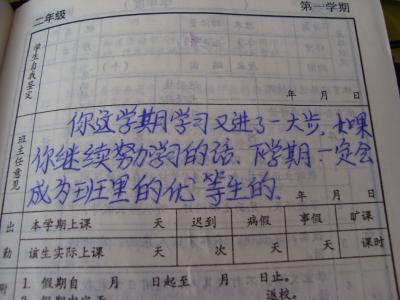 二年级 第一学期
学生自我鉴定
年 月 日
班主任意见
你这学期学习又进了一大步.如果
你继续努力学习的话.下学期一定会
成为班里的优等生的.
年 月 日
出勤
本学期上课 天 迟到 病假 事假 旷课
该生实际上课 天 次 天 天 课时
1. 假期自 月 日起至 月 日止。
返校。